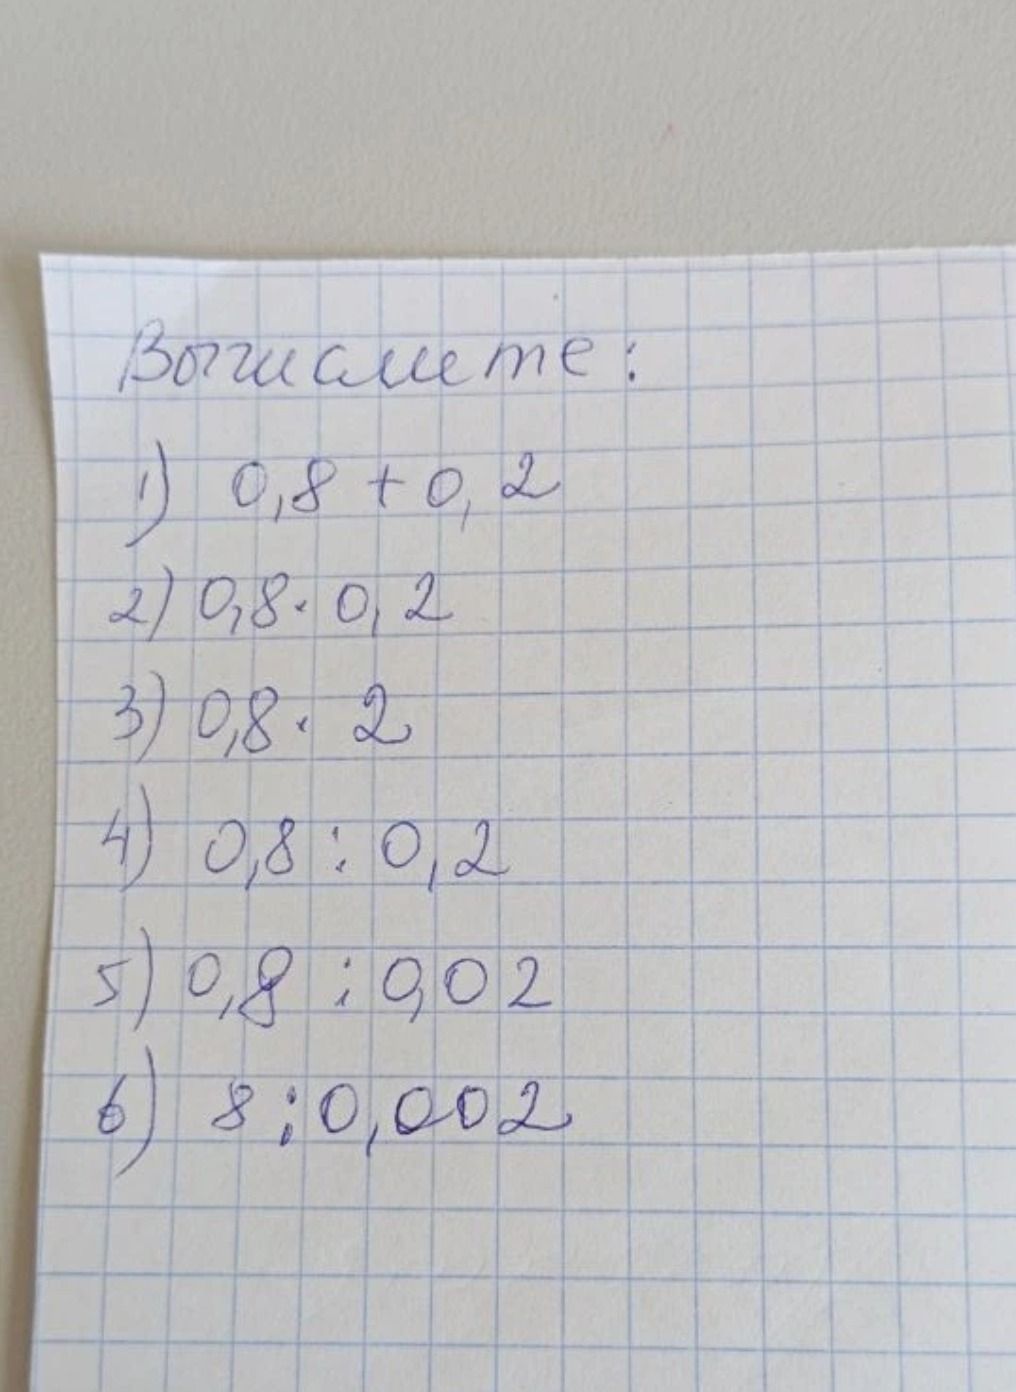 Вычислите:
1) 0,8 + 0,2
2) 0,8 · 0,2
3) 0,8 · 2
4) 0,8 : 0,2
5) 0,8 : 0,02
6) 8 : 0,002